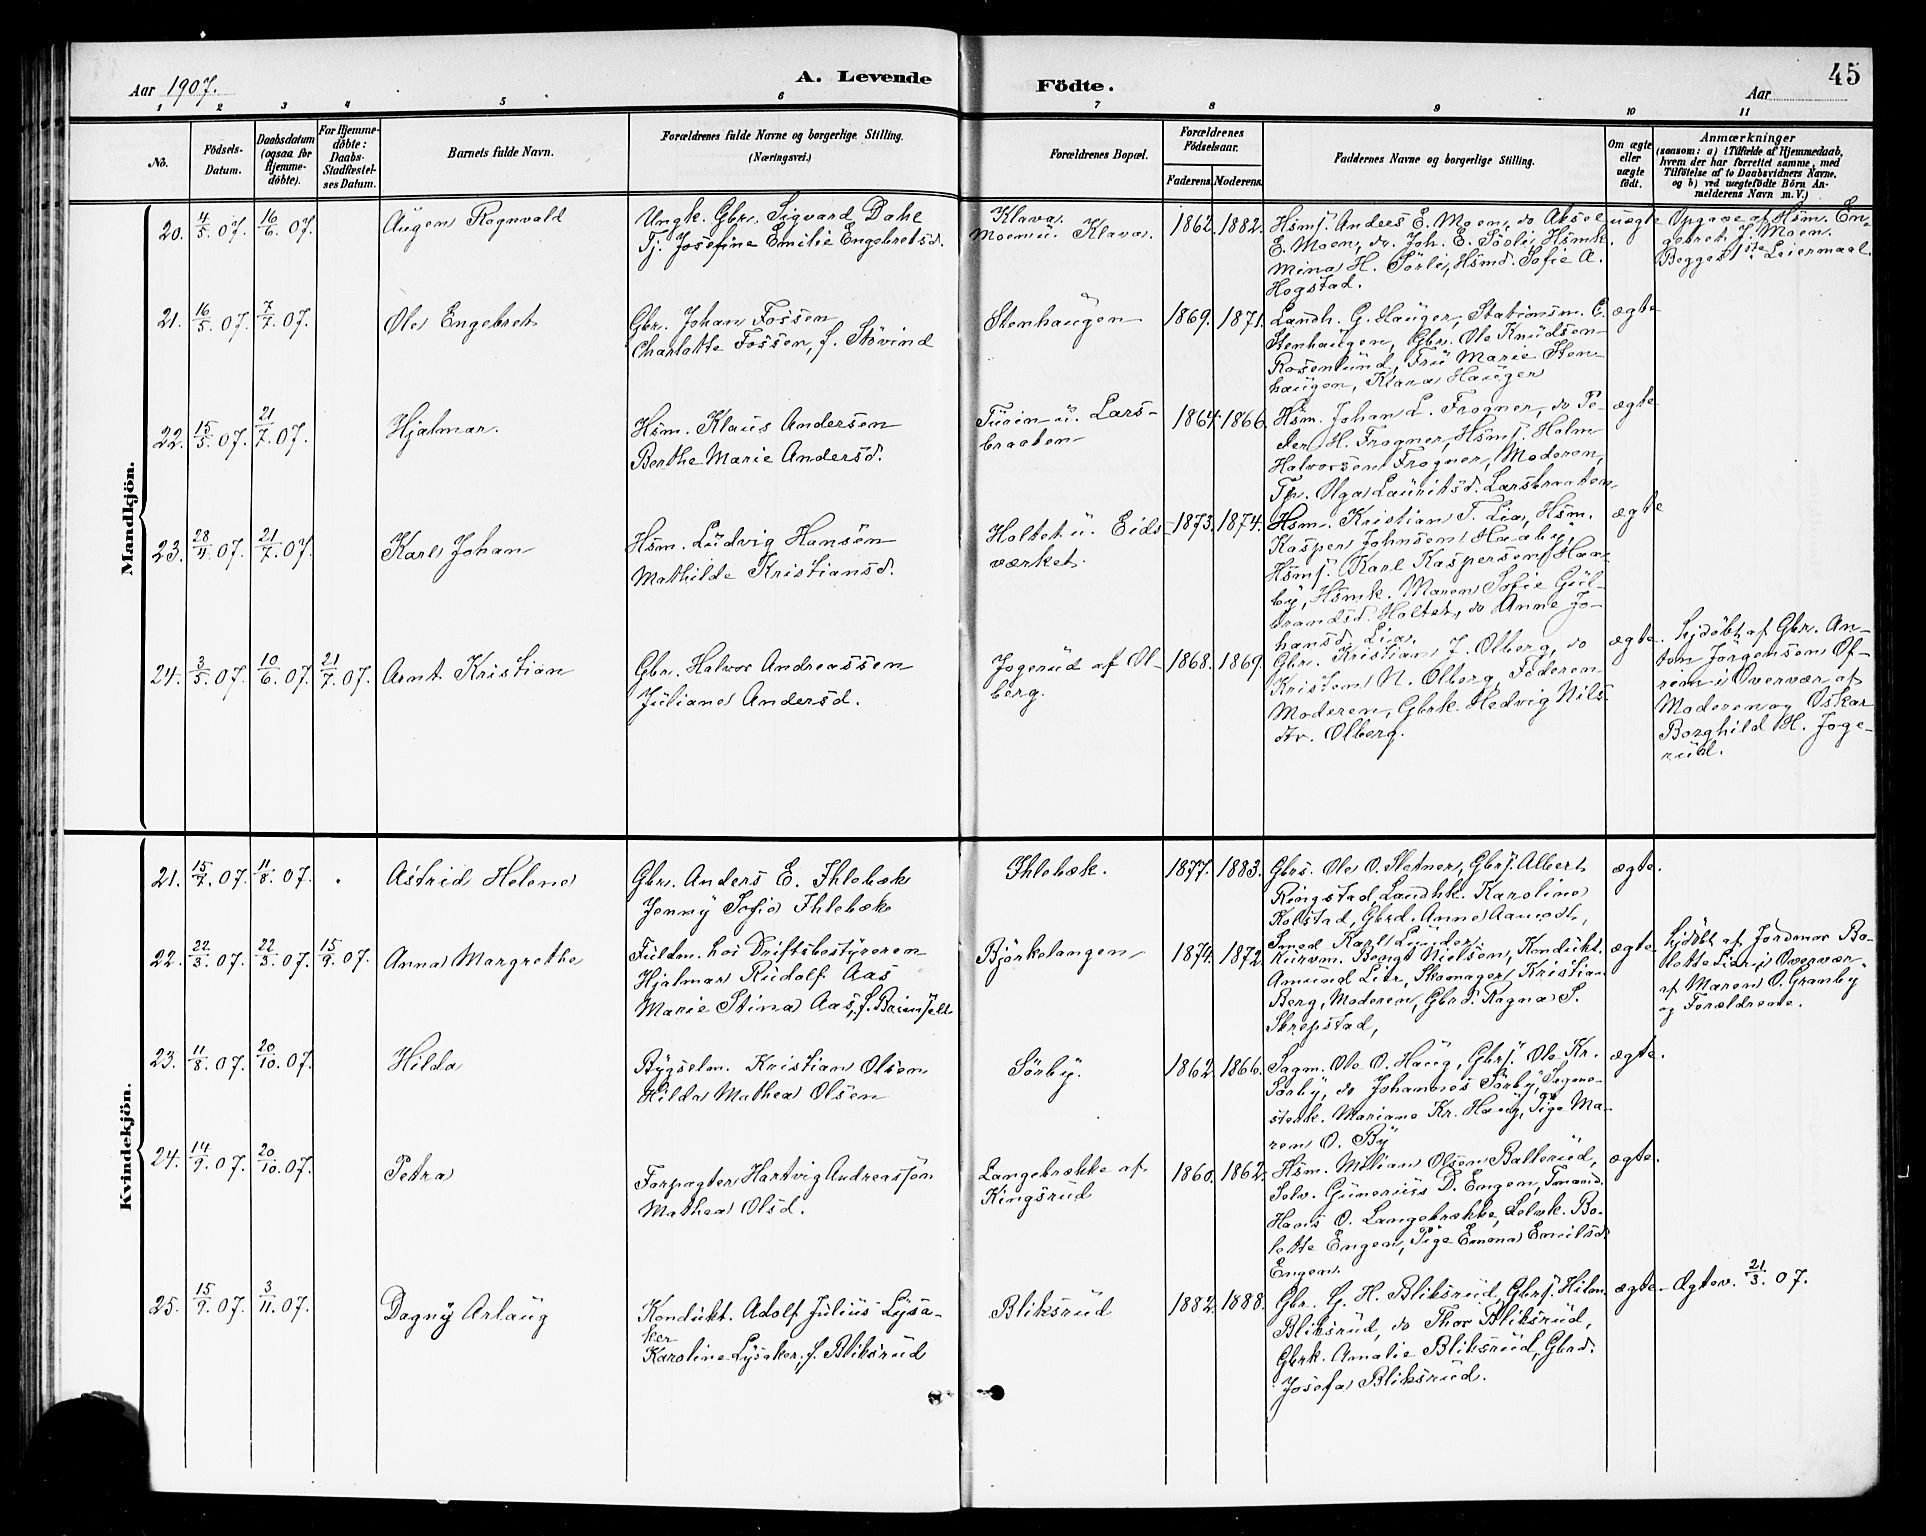 Aar 1907.
A. Levende
Födte.
45
Aar
1 2 3 4 5 6 7 8 9 10 11
No.
Födsels-
Datum.
Daabsdatum
(ogsaa for
Hjemme-
døbte).
For Hjemme-
döbte:
Daabs-
Stadfæstel-
ses Datum.
Barnets fulde Navn.
Forældrenes fulde Navne og borgerlige Stilling.
(Næringsvei.)
Forældrenes Bopæl.
Forældrenes
Födselsaar.
Faderens. Moderens.
Faddernes Navne og borgerlige Stilling.
Om ægte
eller
uægte
født.
Anmærkninger
(saasom: a) i Tilfælde af Hjemmedaab,
hvem der har forrettet samme, med
Tilföielse af to Daabsvidners Navne.
og b) ved uægtefödte Börn An-
melderens Navn m. V.)
Mandkjön.
20. 4/5 07. 16/6 07.
Augen Rognvald
Ungk. Gbr. Sigvard Dahl
Tj. Josefine Emilie Engebretsd.
Klava.
Moen u. Klava.
1862. 1882.
Hsms. Anders E. Moen, do Aksel
E. Moen, do. Joh. E. Sörli, Hsmk.
Mina H. Sörli, Hsmd. Sofie A.
Hogstad.
uægte.
Opgave af Hsm. En-
gebret J. Moen.
Begges 1ste Leiermaal.
21. 16/5 07. 7/7 07.
Ole Engebret
Gbr. Johan Fossen
Charlotte Fossen, f. Stövind
Stenhaugen
1869. 1871.
Landh. G. Hauger, Stationsm. C.
Stenhaugen, Gbr. Ole Knudsen
Rosenlund, Fru Marie Sten-
haugen, Klara Hauger
ægte
22. 15/5 07. 21/7 07.
Hjalmar.
Hsm. Klaus Andersen
Berthe Marie Andersd.
Tuien u. Lars-
braaten
1864. 1866.
Hsm. Johan L. Frogner, do Pe-
der H. Frogner, Hsms. Halm
Halvorsen Frogner, Moderen,
Tp. Olga Lauritsd. Larsbraaten
ægte
23. 28/4 07. 21/7 07.
Karl Johan
Hsm. Ludvig Hansen
Mathilde Kristiansd.
Holtet u. Eids-
værket.
1873. 1874.
Hsm. Kristian T. Lia, Hsm.
Kasper Johnsen Haaby,
Hsms. Karl Kaspersen Haa-
by, Hsmk. Maren Sofie Gul-
brandsd. Holtet, do Anne Jo-
hansd. Lia.
ægte
24. 3/5 07. 10/6 07. 21/7 07.
Arnt Kristian
Gbr. Halvor Andreassen
Juliane Andersd.
Jogerud af Ol-
berg.
1868. 1869.
Gbr. Kristian J. Olberg, do
Kristen N. Olberg, Faderen
Moderen, Gbrk. Hedvig Nils-
dtr. Olberg.
ægte.
Hjdöbt af Gbr. An-
ton Jörgensen Of-
rein i Overvær af
Moderen og Oskar
Borghild H. Joge-
rud.
Kvindekjön.
21. 15/7 07. 11/8 07.
Astrid Helene
Gbr. Anders E. Ihlebæk
Jenny Sofie Ihlebæk
Ihlebæk.
1877. 1883.
Gbrs. Ole O. Sletner, Gbrs. Albert
Ringstad, Landhk. Karoline
Kolstad, Gbrd. Anne Aamodt,
Smed Karl Linder.
ægte.
22. 22/3 07. 22/3 07. 15/9 07.
Anna Margrethe
Fuldm. hos Driftsbestyreren
Hjalmar Rudolf Aas
Marie Stina Aas, f. Brimfelt
Björkelangen
1874. 1872.
Kurvm. Bengt Nielsen, Kondukt.
Amund Lier, Skomager Kristian
Berg, Moderen, Gbrd. Ragna S.
Skrepstad,
ægte.
Hjdöbt af Jordmor Bo-
lette Lier i Overvær
af Maren O. Granby
og Forældrene.
23. 11/8 07. 20/10 07.
Hilda
Bygselm. Kristian Olsen
Hilda Mathea Olsen
Sörby.
1862. 1866.
Sagm. Ole O. Haug, Gbrs. Ole Kr.
Sörby, do Johannes Sörby, Sagme-
sterk. Mariane Kr. Haug, Pige Ma-
ren O. By
ægte.
24. 14/9 07. 20/10 07.
Petra
Forpagter Hartvig Andreassen
Mathea Olsd.
Langebrække af
Kingsrud
1860. 1862.
Hsm. Milian Olsen Ballerud,
Selv. Gunerius D. Engen, Tmand.
Hans O. Langebrække, Selvk. Bo-
lette Engen, Pige Emma Emilsd.
Engen.
ægte.
25. 15/9 07. 3/11 07.
Dagny Arlaug
Kondukt. Adolf Julius Lysa-
ker
Karoline Lysaker, f. Bliksrud
Bliksrud
1882. 1888.
Gbr. G. H. Bliksrud, Gbrs. Hilm.
Bliksrud, do Thor Bliksrud,
Gbrk. Amalie Bliksrud, Gbrd.
Josefa Bliksrud.
ægte
Ægtev. 21/3 07.